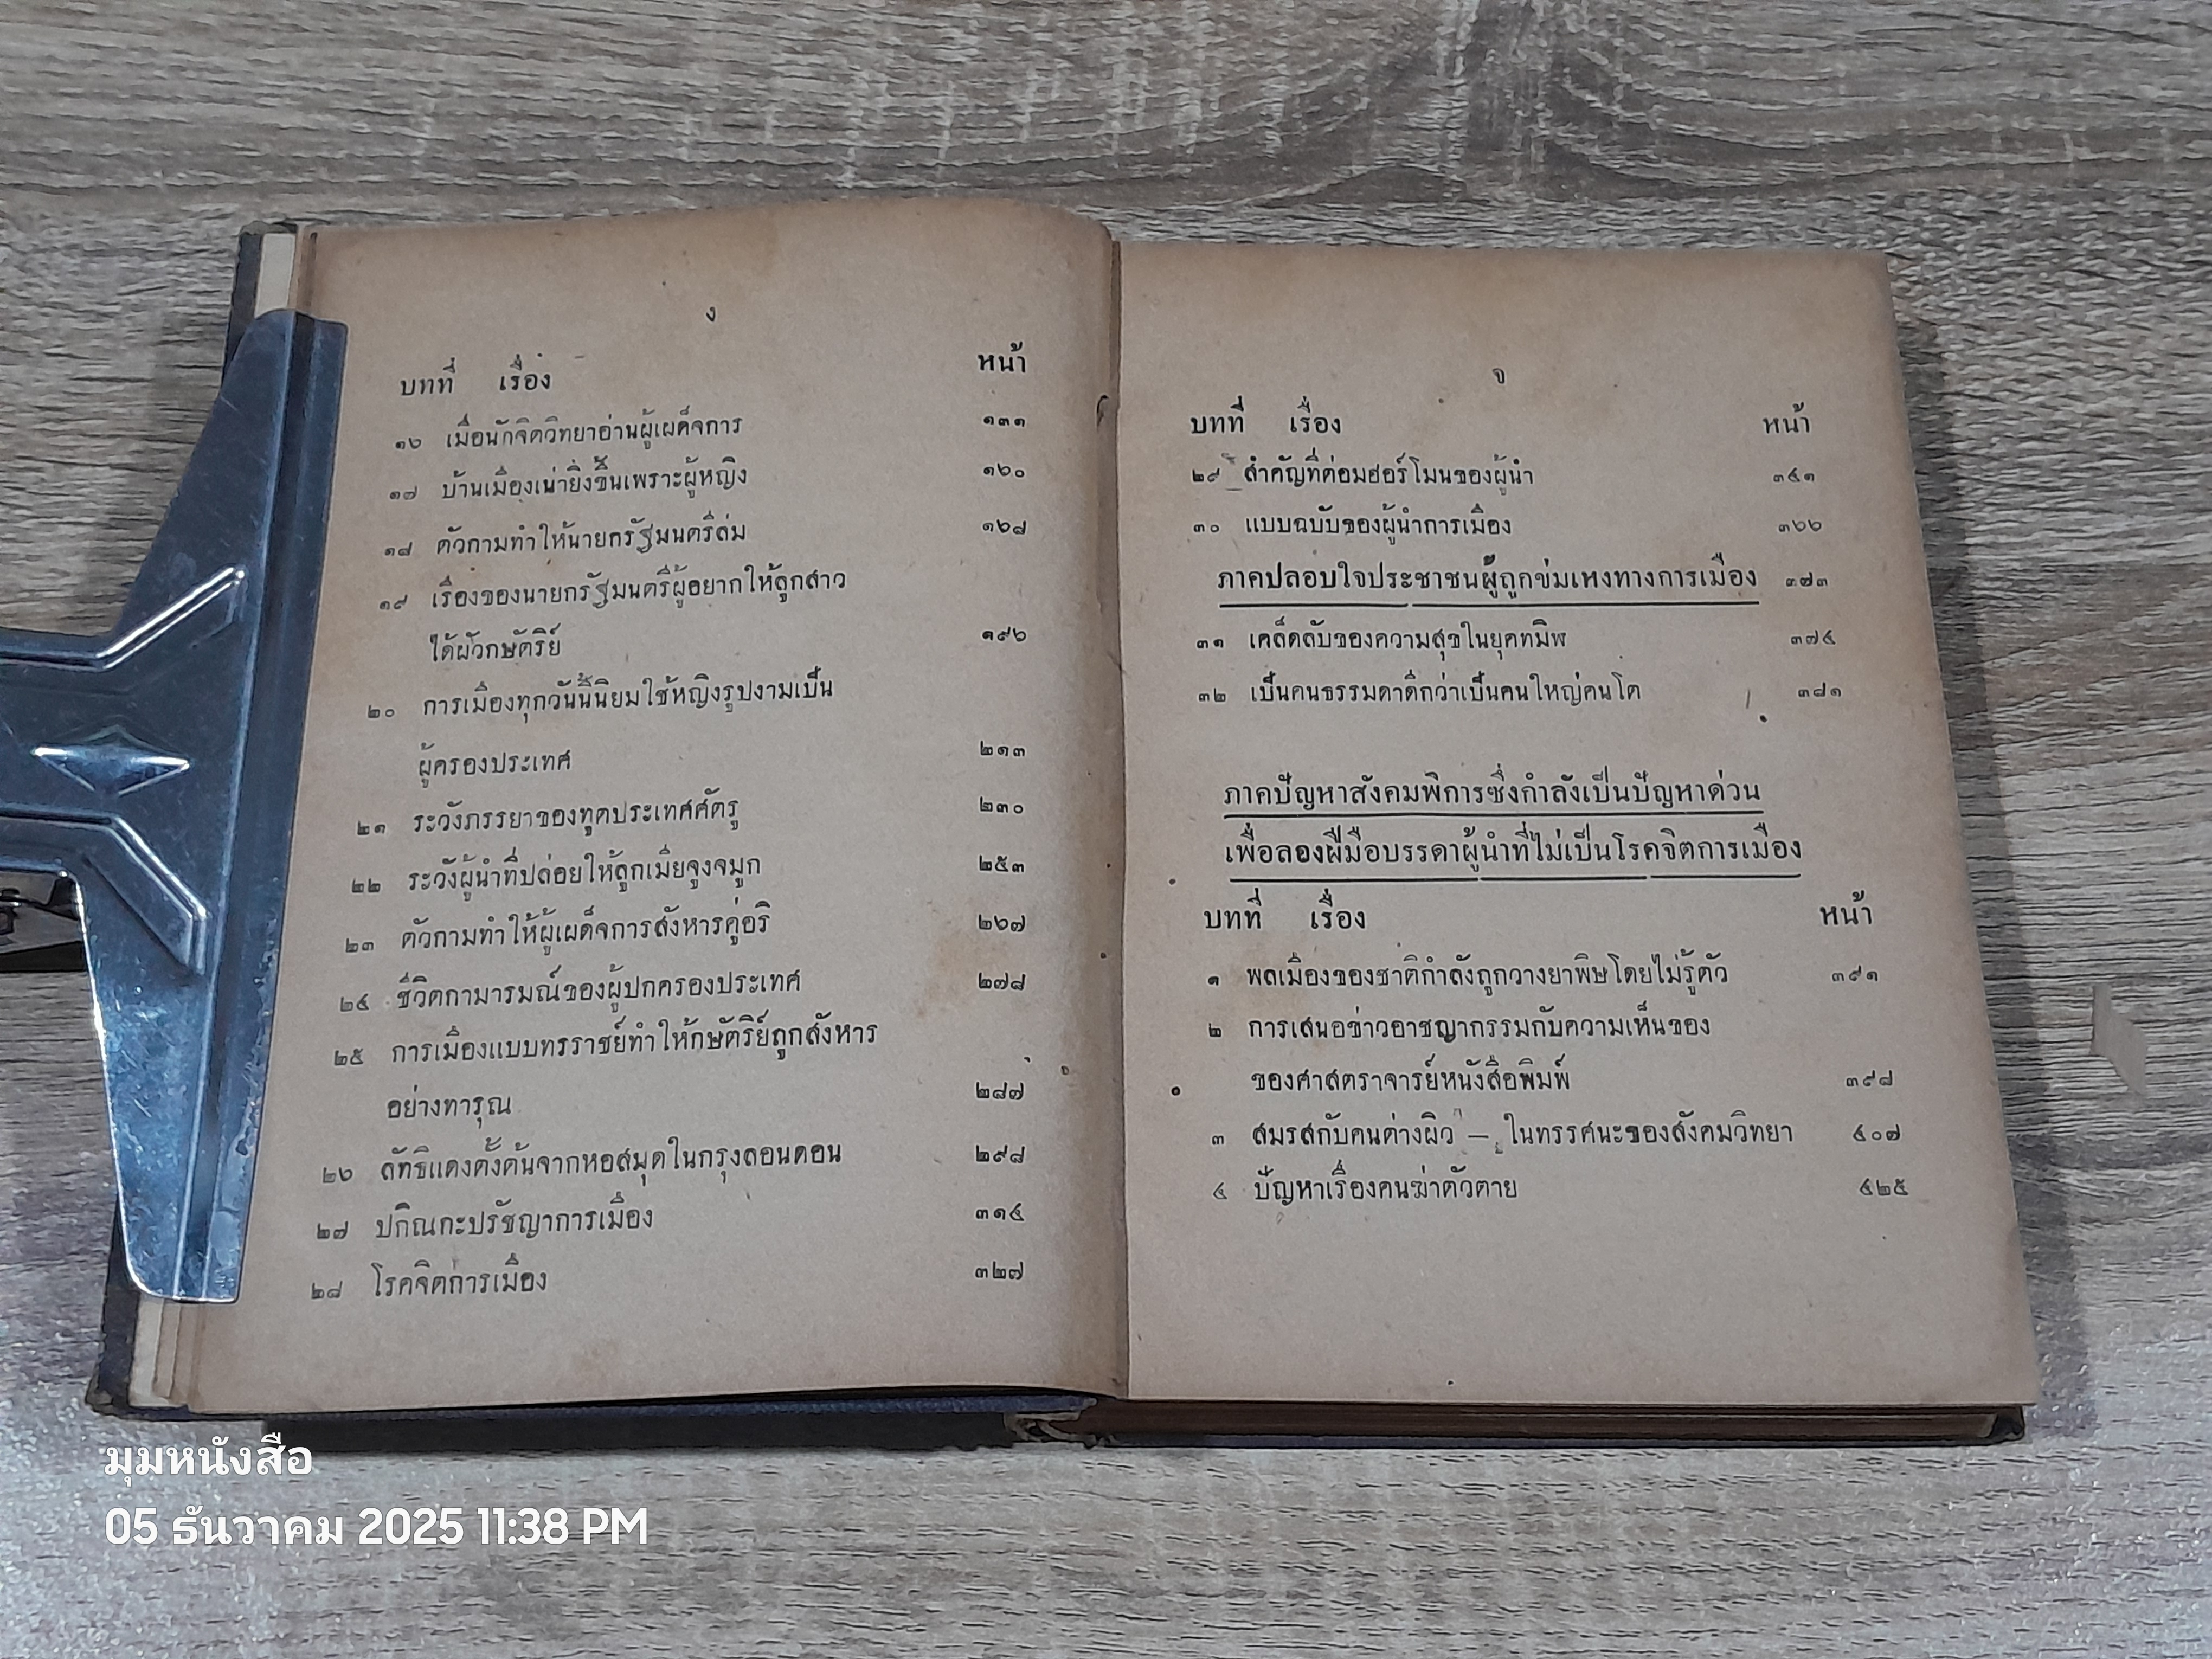 ง
บทที่ เรื่อง หน้า
๑๖ เมื่อนักจิตวิทยาอ่านผู้เผด็จการ ๑๓๑
๑๗ บ้านเมืองเน่ายิ่งขึ้นเพราะผู้หญิง ๑๖๐
๑๘ ตัวกามทำให้นายกรัฐมนตรีล่ม ๑๖๘
๑๙ เรื่องของนายกรัฐมนตรีผู้อยากให้ลูกสาว
ได้ผัวกษัตริย์ ๑๙๖
๒๐ การเมืองทุกวันนี้นิยมใช้หญิงรูปงามเป็น
ผู้ครองประเทศ ๒๑๓
๒๑ ระวังภรรยาของทูตประเทศศัตรู ๒๓๐
๒๒ ระวังผู้นำที่ปล่อยให้ลูกเมียจูงจมูก ๒๕๓
๒๓ ตัวกามทำให้ผู้เผด็จการสังหารคู่อริ ๒๖๗
๒๔ ชีวิตกามารมณ์ของผู้ปกครองประเทศ ๒๗๘
๒๕ การเมืองแบบทรราชย์ทำให้กษัตริย์ถูกสังหาร
อย่างทารุณ ๒๘๗
๒๖ ลัทธิแดงตั้งต้นจากหอสมุดในกรุงลอนดอน ๒๙๘
๒๗ ปกิณกะปรัชญาการเมือง ๓๑๔
๒๘ โรคจิตการเมือง ๓๒๗
จ
บทที่ เรื่อง หน้า
๒๙ สำคัญที่ต่อมฮอร์โมนของผู้นำ ๓๔๑
๓๐ แบบฉบับของผู้นำการเมือง ๓๖๖
ภาคปลอบใจประชาชนผู้ถูกข่มเหงทางการเมือง ๓๗๓
๓๑ เคล็ดลับของความสุขในยุคทมิฬ ๓๗๔
๓๒ เป็นคนธรรมดาดีกว่าเป็นคนใหญ่คนโต ๓๘๑
ภาคปัญหาสังคมพิการซึ่งกำลังเป็นปัญหาด่วน
เพื่อลองฝีมือบรรดาผู้นำที่ไม่เป็นโรคจิตการเมือง
บทที่ เรื่อง หน้า
๑ พลเมืองของชาติกำลังถูกวางยาพิษโดยไม่รู้ตัว ๓๙๑
๒ การเสนอข่าวอาชญากรรมกับความเห็นของ
ของศาสตราจารย์หนังสือพิมพ์ ๓๙๘
๓ สมรสกับคนต่างผิว — ในทรรศนะของสังคมวิทยา ๔๐๗
๔ ปัญหาเรื่องคนฆ่าตัวตาย ๔๒๕
มุมหนังสือ
05 ธันวาคม 2025 11:38 PM